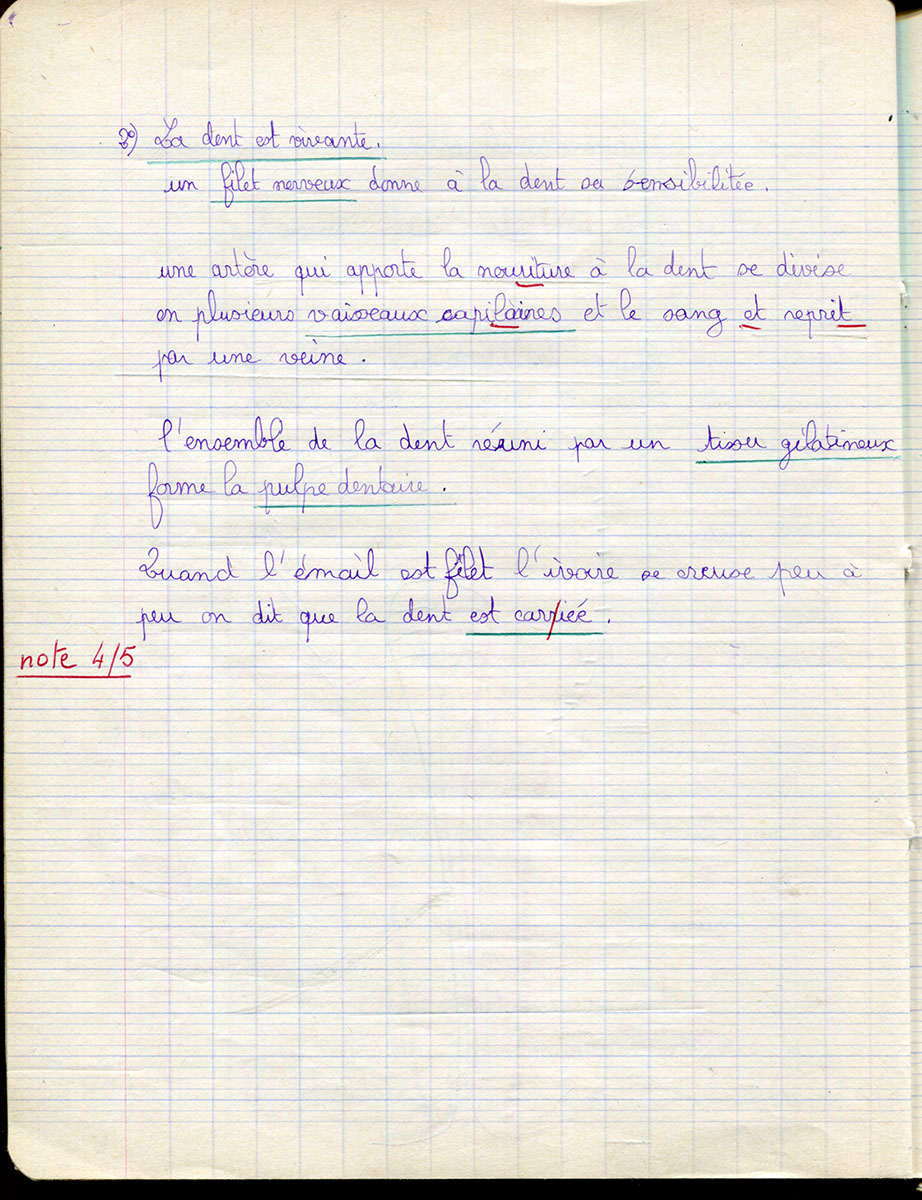 3º) La dent est vivante.
un filet nerveux donne à la dent sa sensibilitée.
une artère qui apporte la nouriture à la dent se divise
en plusieurs vaisseaux capilaires et le sang et reprit
par une veine.
l'ensemble de la dent réuni par un tissu gélatineux
forme la pulpe dentaire.
Quand l'émail est filet l'ivoire se creuse peu à
peu on dit que la dent est carriée.
note 4/5